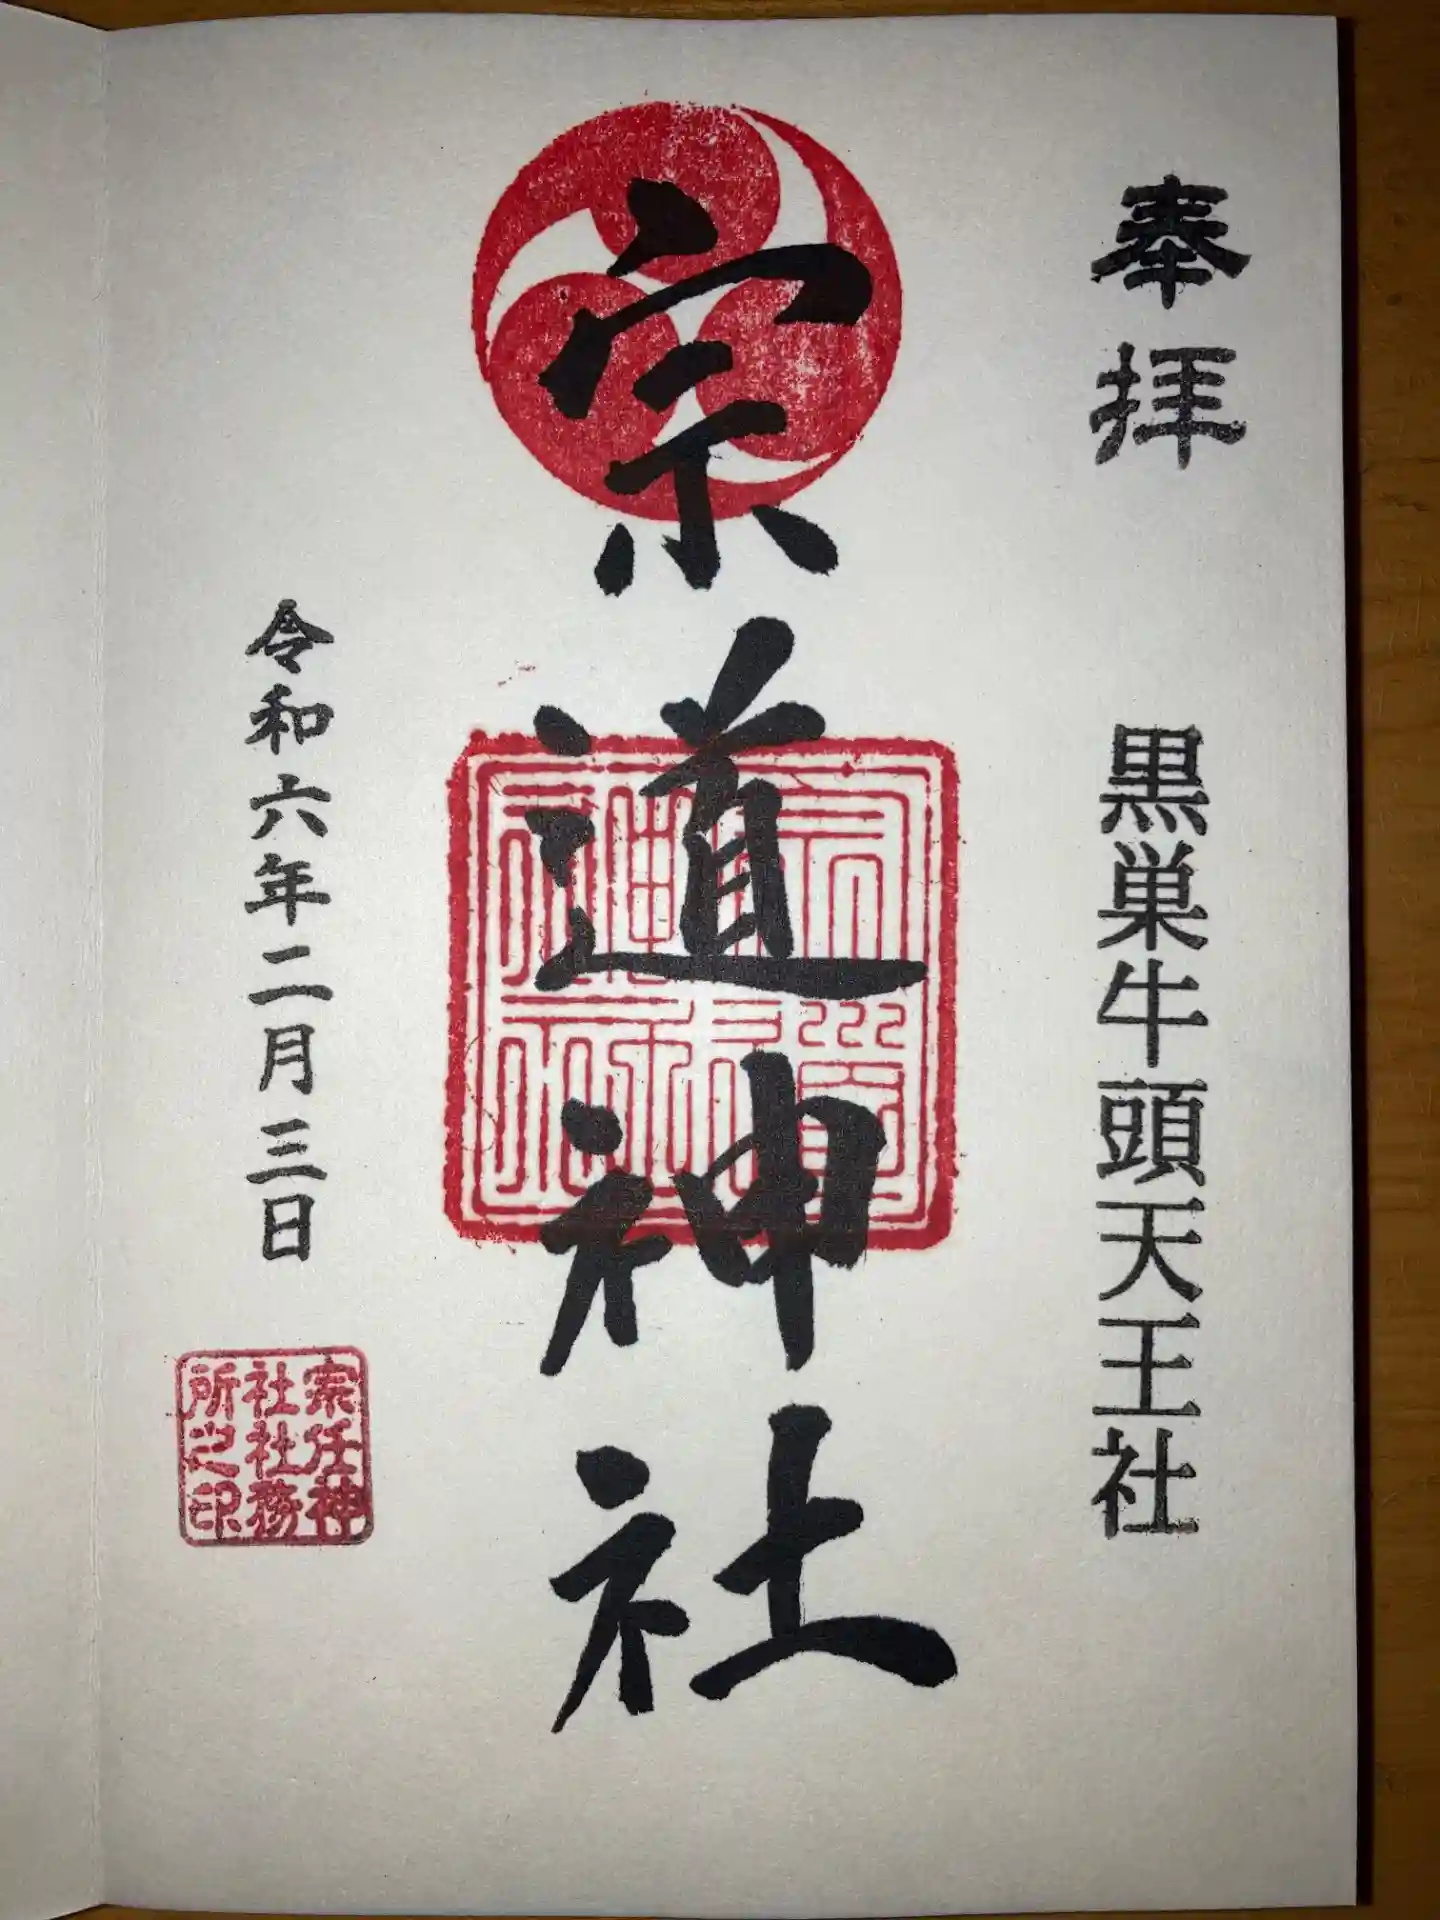 奉拝
黒巣牛頭天王社
宗道神社
宗道神社神社
令和六年二月三日
宗任神
社社務
所之印